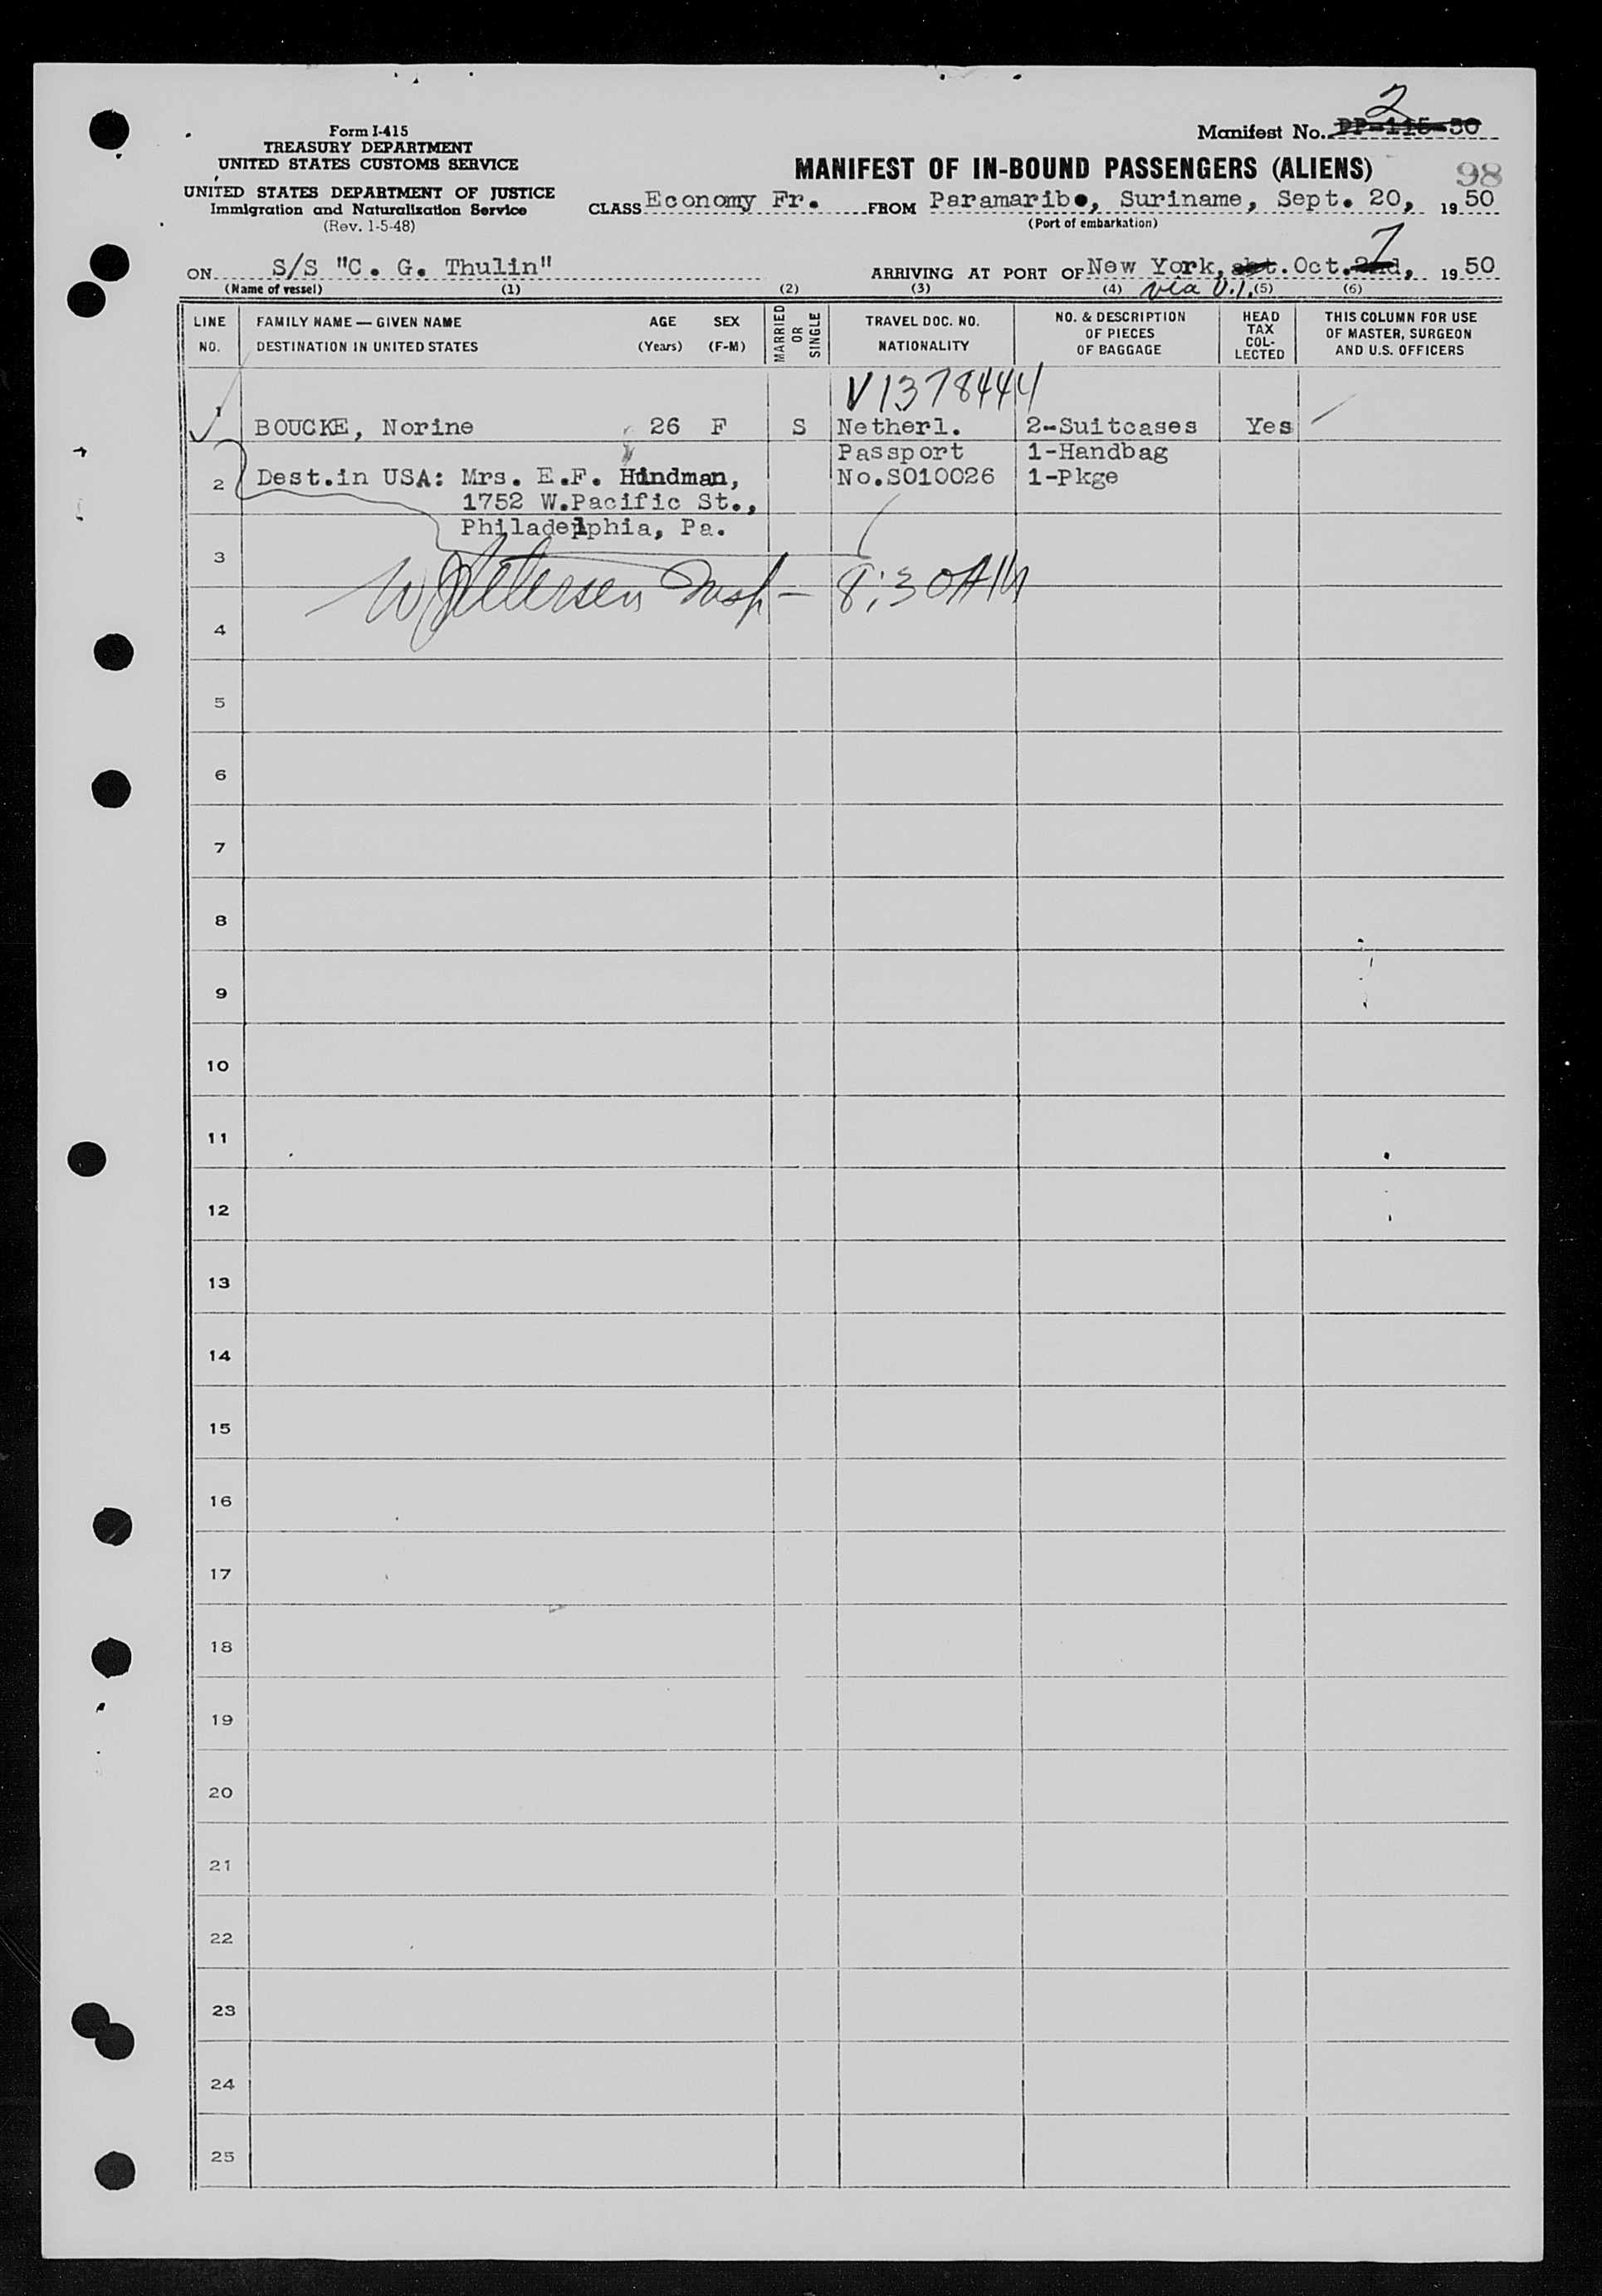 2
Form I-415
TREASURY DEPARTMENT
UNITED STATES CUSTOMS SERVICE
UNITED STATES DEPARTMENT OF JUSTICE
Immigration and Naturalization Service
(Rev. 1-5-48)
Manifest No. PP-115-50
MANIFEST OF IN-BOUND PASSENGERS (ALIENS)
98
CLASS Economy Fr. FROM Paramaribo, Suriname, Sept. 20, 1950
(Port of embarkation)
7
ON S/S "C. G. Thulin" ARRIVING AT PORT OF New York, abt. Oct. 2nd, 1950
via V.I.
(Name of vessel) (1) (2) (3) (4) (5) (6)
LINE NO. FAMILY NAME — GIVEN NAME DESTINATION IN UNITED STATES AGE (Years) SEX (F-M) MARRIED OR SINGLE TRAVEL DOC. NO. NATIONALITY NO. & DESCRIPTION OF PIECES OF BAGGAGE HEAD TAX COL- LECTED THIS COLUMN FOR USE OF MASTER, SURGEON AND U.S. OFFICERS
V1378444
1 BOUCKE, Norine 26 F S Netherl. 2-Suitcases Yes
Passport 1-Handbag
2 Dest.in USA: Mrs. E.F. Hindman, No.S010026 1-Pkge
1752 W.Pacific St.,
Philadelphia, Pa.
3
W Petersen Insp - 8:30AM
4
5
6
7
8
9
10
11
12
13
14
15
16
17
18
19
20
21
22
23
24
25